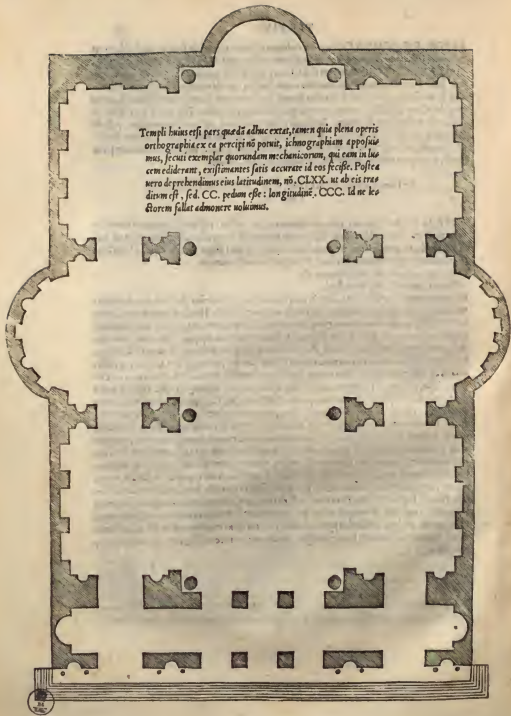 Templi huius etsi pars quædā adhuc extat, tamen quia plena operis
orthographia ex ea percipi nō potuit, ichnographiam apposui⸗
mus, secuti exemplar quorundam mechanicorum, qui eam in lu⸗
cem ediderant, existimantes satis accurate id eos fecisse. Postea
uero deprehendimus eius latitudinem, nō. CLXX. ut ab eis tra⸗
ditum est, sed. CC. pedum esse: longitudinē. CCC. Id ne le⸗
ctorem fallat admonere uoluimus.